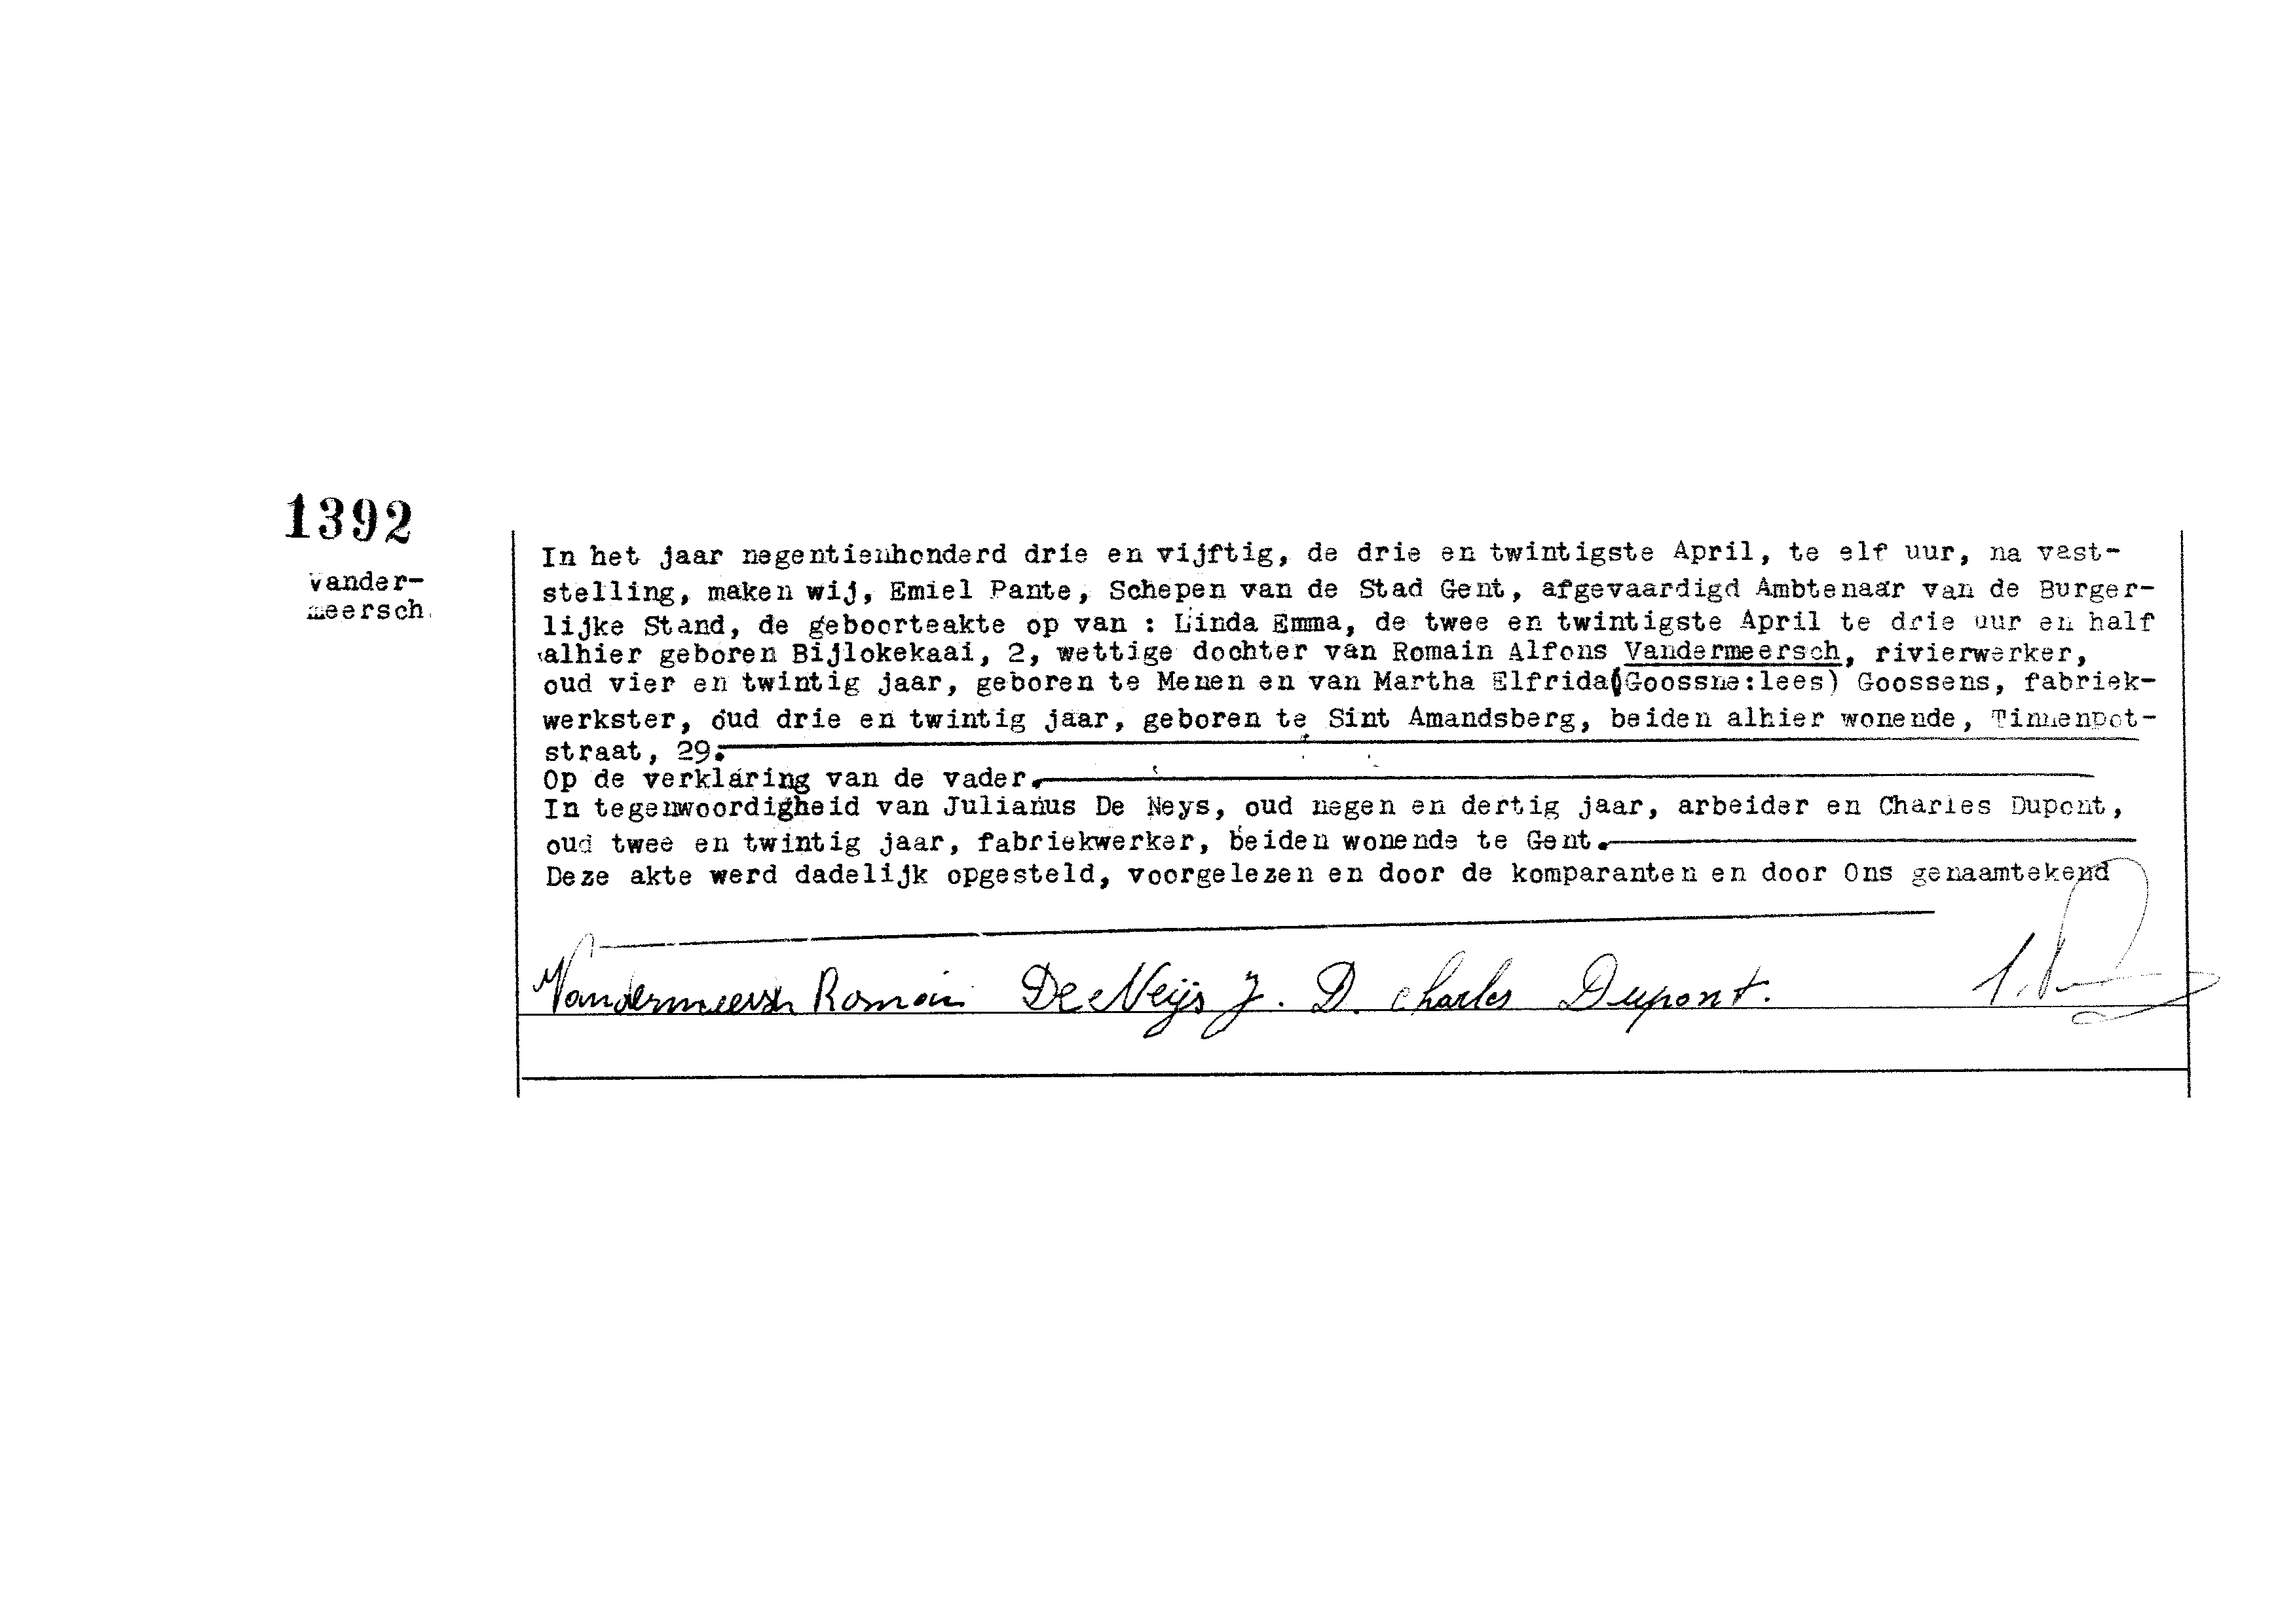 1392
vander-
meersch.
In het jaar negentienhonderd drie en vijftig, de drie en twintigste April, te elf uur, na vast-
stelling, maken wij, Emiel Pante, Schepen van de Stad Gent, afgevaardigd Ambtenaar van de Burger-
lijke Stand, de geboorteakte op van : Linda Emma, de twee en twintigste April te drie uur en half
alhier geboren Bijlokekaai, 2, wettige dochter van Romain Alfons Vandermeersch, rivierwerker,
oud vier en twintig jaar, geboren te Menen en van Martha Elfrida(Goossne:lees) Goossens, fabriek-
werkster, oud drie en twintig jaar, geboren te Sint Amandsberg, beiden alhier wonende, Tinnenpot-
straat, 29.
Op de verklaring van de vader.
In tegenwoordigheid van Julianus De Neys, oud negen en dertig jaar, arbeider en Charles Dupont,
oud twee en twintig jaar, fabriekwerker, beiden wonende te Gent.
Deze akte werd dadelijk opgesteld, voorgelezen en door de komparanten en door Ons genaamtekend
Vandermeersch Romain De Neijs J. D. charles Dupont.